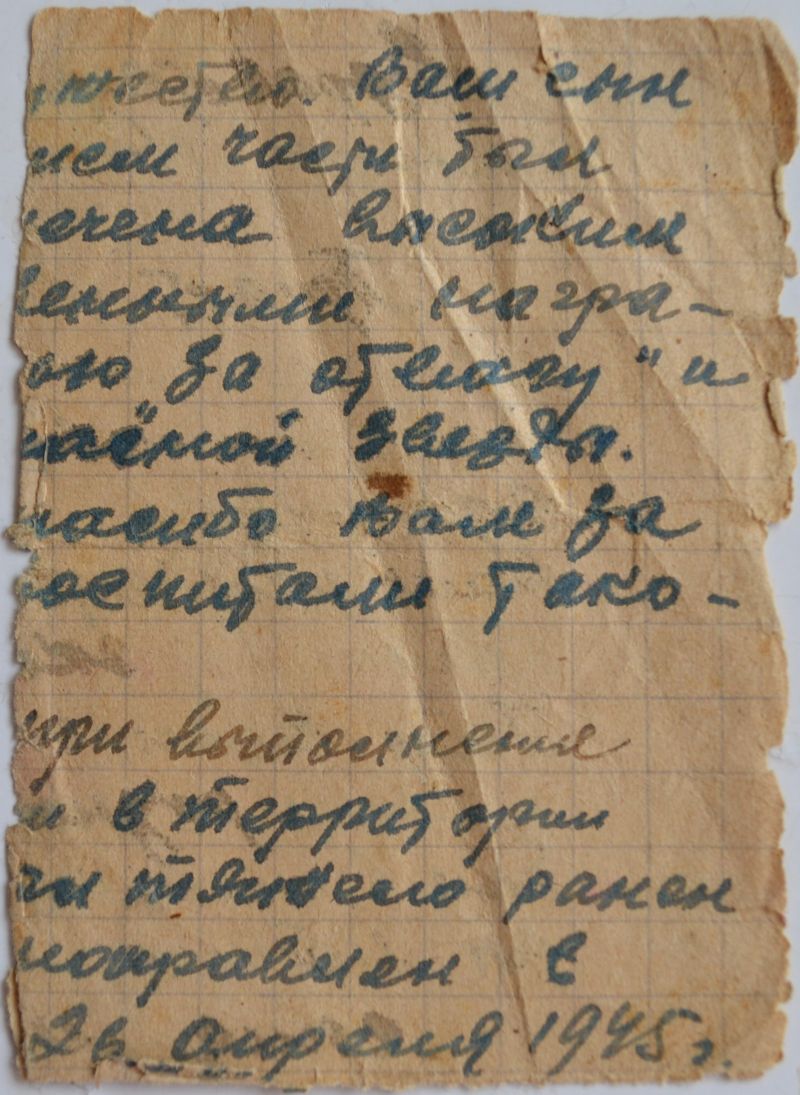 жество. Ваш сын
ием части был
ечена высоким
енными награ-
ою за отвагу" и
ной звезды.
пасибо Вам за
оспитали тако-
при выполнения
и в территории
тяжело ранен
направлен в
26 апреля 1945 г.